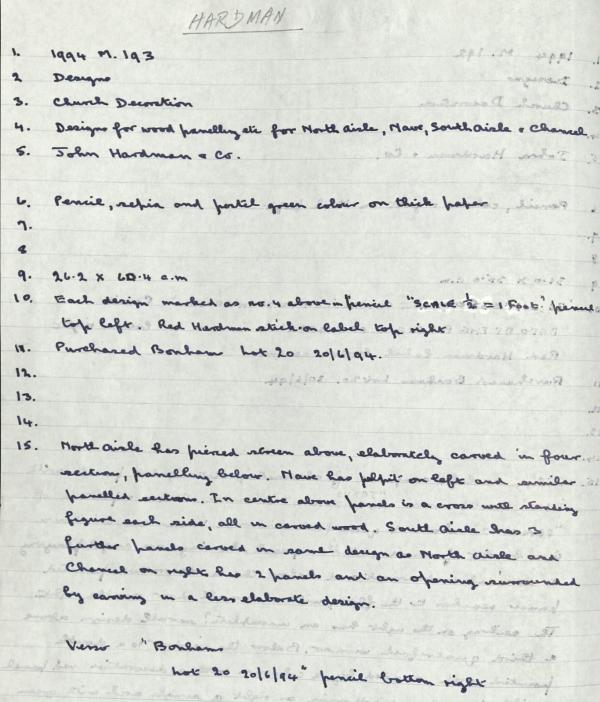 HARDMAN
1. 1994 M. 193
2 Designs
3. Church Decoration
4. Designs for wood panelling etc for North aisle, Nave, South Aisle & Chancel
5. John Hardman & Co.
6. Pencil, sepia and pastel green colour on thick paper
7.
8
9. 26.2 x 60.4 c.m
10. Each design marked as no. 4 above in pencil "SCALE ½ = 1 Foot" pencil
top left. Red Hardman stick-on label top right
11. Purchased Bonham Lot 20 20/6/94.
12.
13.
14.
15. North Aisle has pierced screen above, elaborately carved in four
sections, panelling below. Nave has pulpit on left and similar
panelled sections. In centre above panels is a cross with standing
figure each side, all in carved wood. South Aisle has 3
further panels carved in same design as North Aisle and
Chancel on right has 2 panels and an opening surrounded
by carving in a less elaborate design.
Verso "Bonhams
Lot 20 20/6/94" pencil bottom right